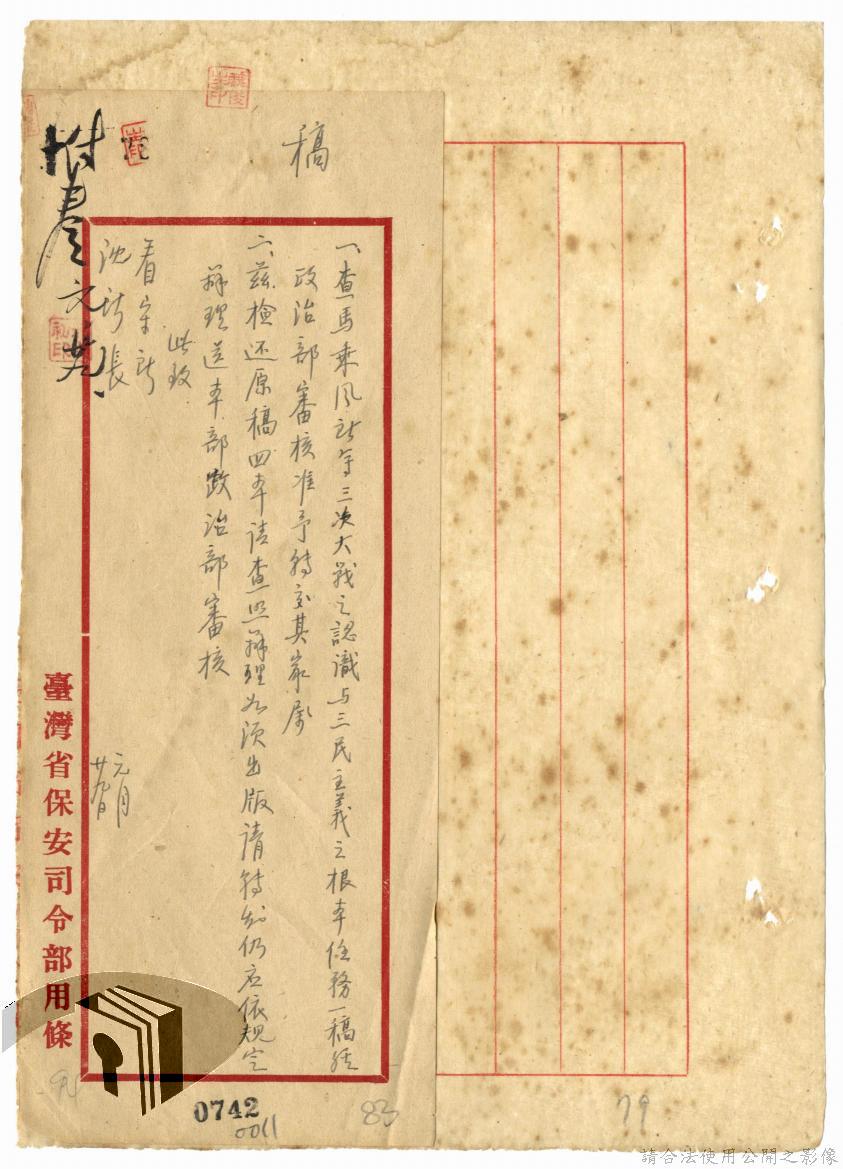 稿
一、查馬乘風所寫三次大戰之認識與三民主義之根本任務一稿經
政治部審核准予轉交其家屬
二、茲檢还原稿四本請查照辦理如須出版請轉知仍应依規定
辦理送本部政治部審核
此致
看守所
沈所長
元月
附卷
臺灣省保安司令部用條
0742
0011
83
79
請合法使用公開之影像